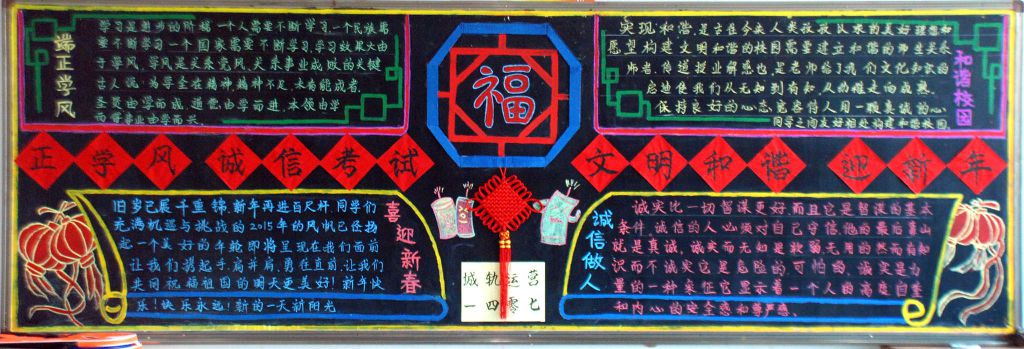 端正学风
学习是进步的阶梯一个人需要不断学习.一个民族需
要不断学习一个国家需要不断学习.学习效果大由
于学风.学风是关系党风.关系事业成败的关键
古人说:为学全在精神,精神不足,未有能成者.
圣贤由学而成,道德由学而进.本领由学
而得事业由学而兴.
福
和谐校园
实现和谐.是古往今来人类孜孜以求的美好理想和
愿望构建文明和谐的校园需要建立和谐的师生关系
师者.传道授业解惑也.是老师给了我们文化知识的
启迪使我们从无知到有知,从幼稚走向成熟.
保持良好的心态.宽容待人用一颗真诚的心
同学之间友好相处构建和谐校园.
正学风 诚信考试
文明和谐 迎新年
旧岁已展千重锦.新年再进百尺杆.同学们
充满机遇与挑战的2015年的风帆已经扬
起一个美好的年轮即将呈现在我们面前
让我们携起手,肩并肩,勇往直前.让我们
共同祝福祖国的明天更美好!新年快
乐!快乐永远!新的一天新阳光
喜迎新春
城轨运营
一四零七
诚信做人
诚实比一切智谋更好而且它是智谋的基本
条件,诚信的人必须对自己守信,他的最后靠山
就是真诚,诚实而无知是软弱无用的然而有知
识而不诚实它是危险的可怕的,诚实是力
量的一种象征它显示着一个人的高度自重
和内心的安全感和尊严感.